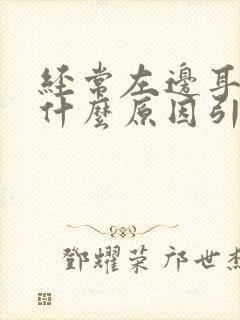 經常左邊耳
什麼原因引
鄧耀荣 邝世杰